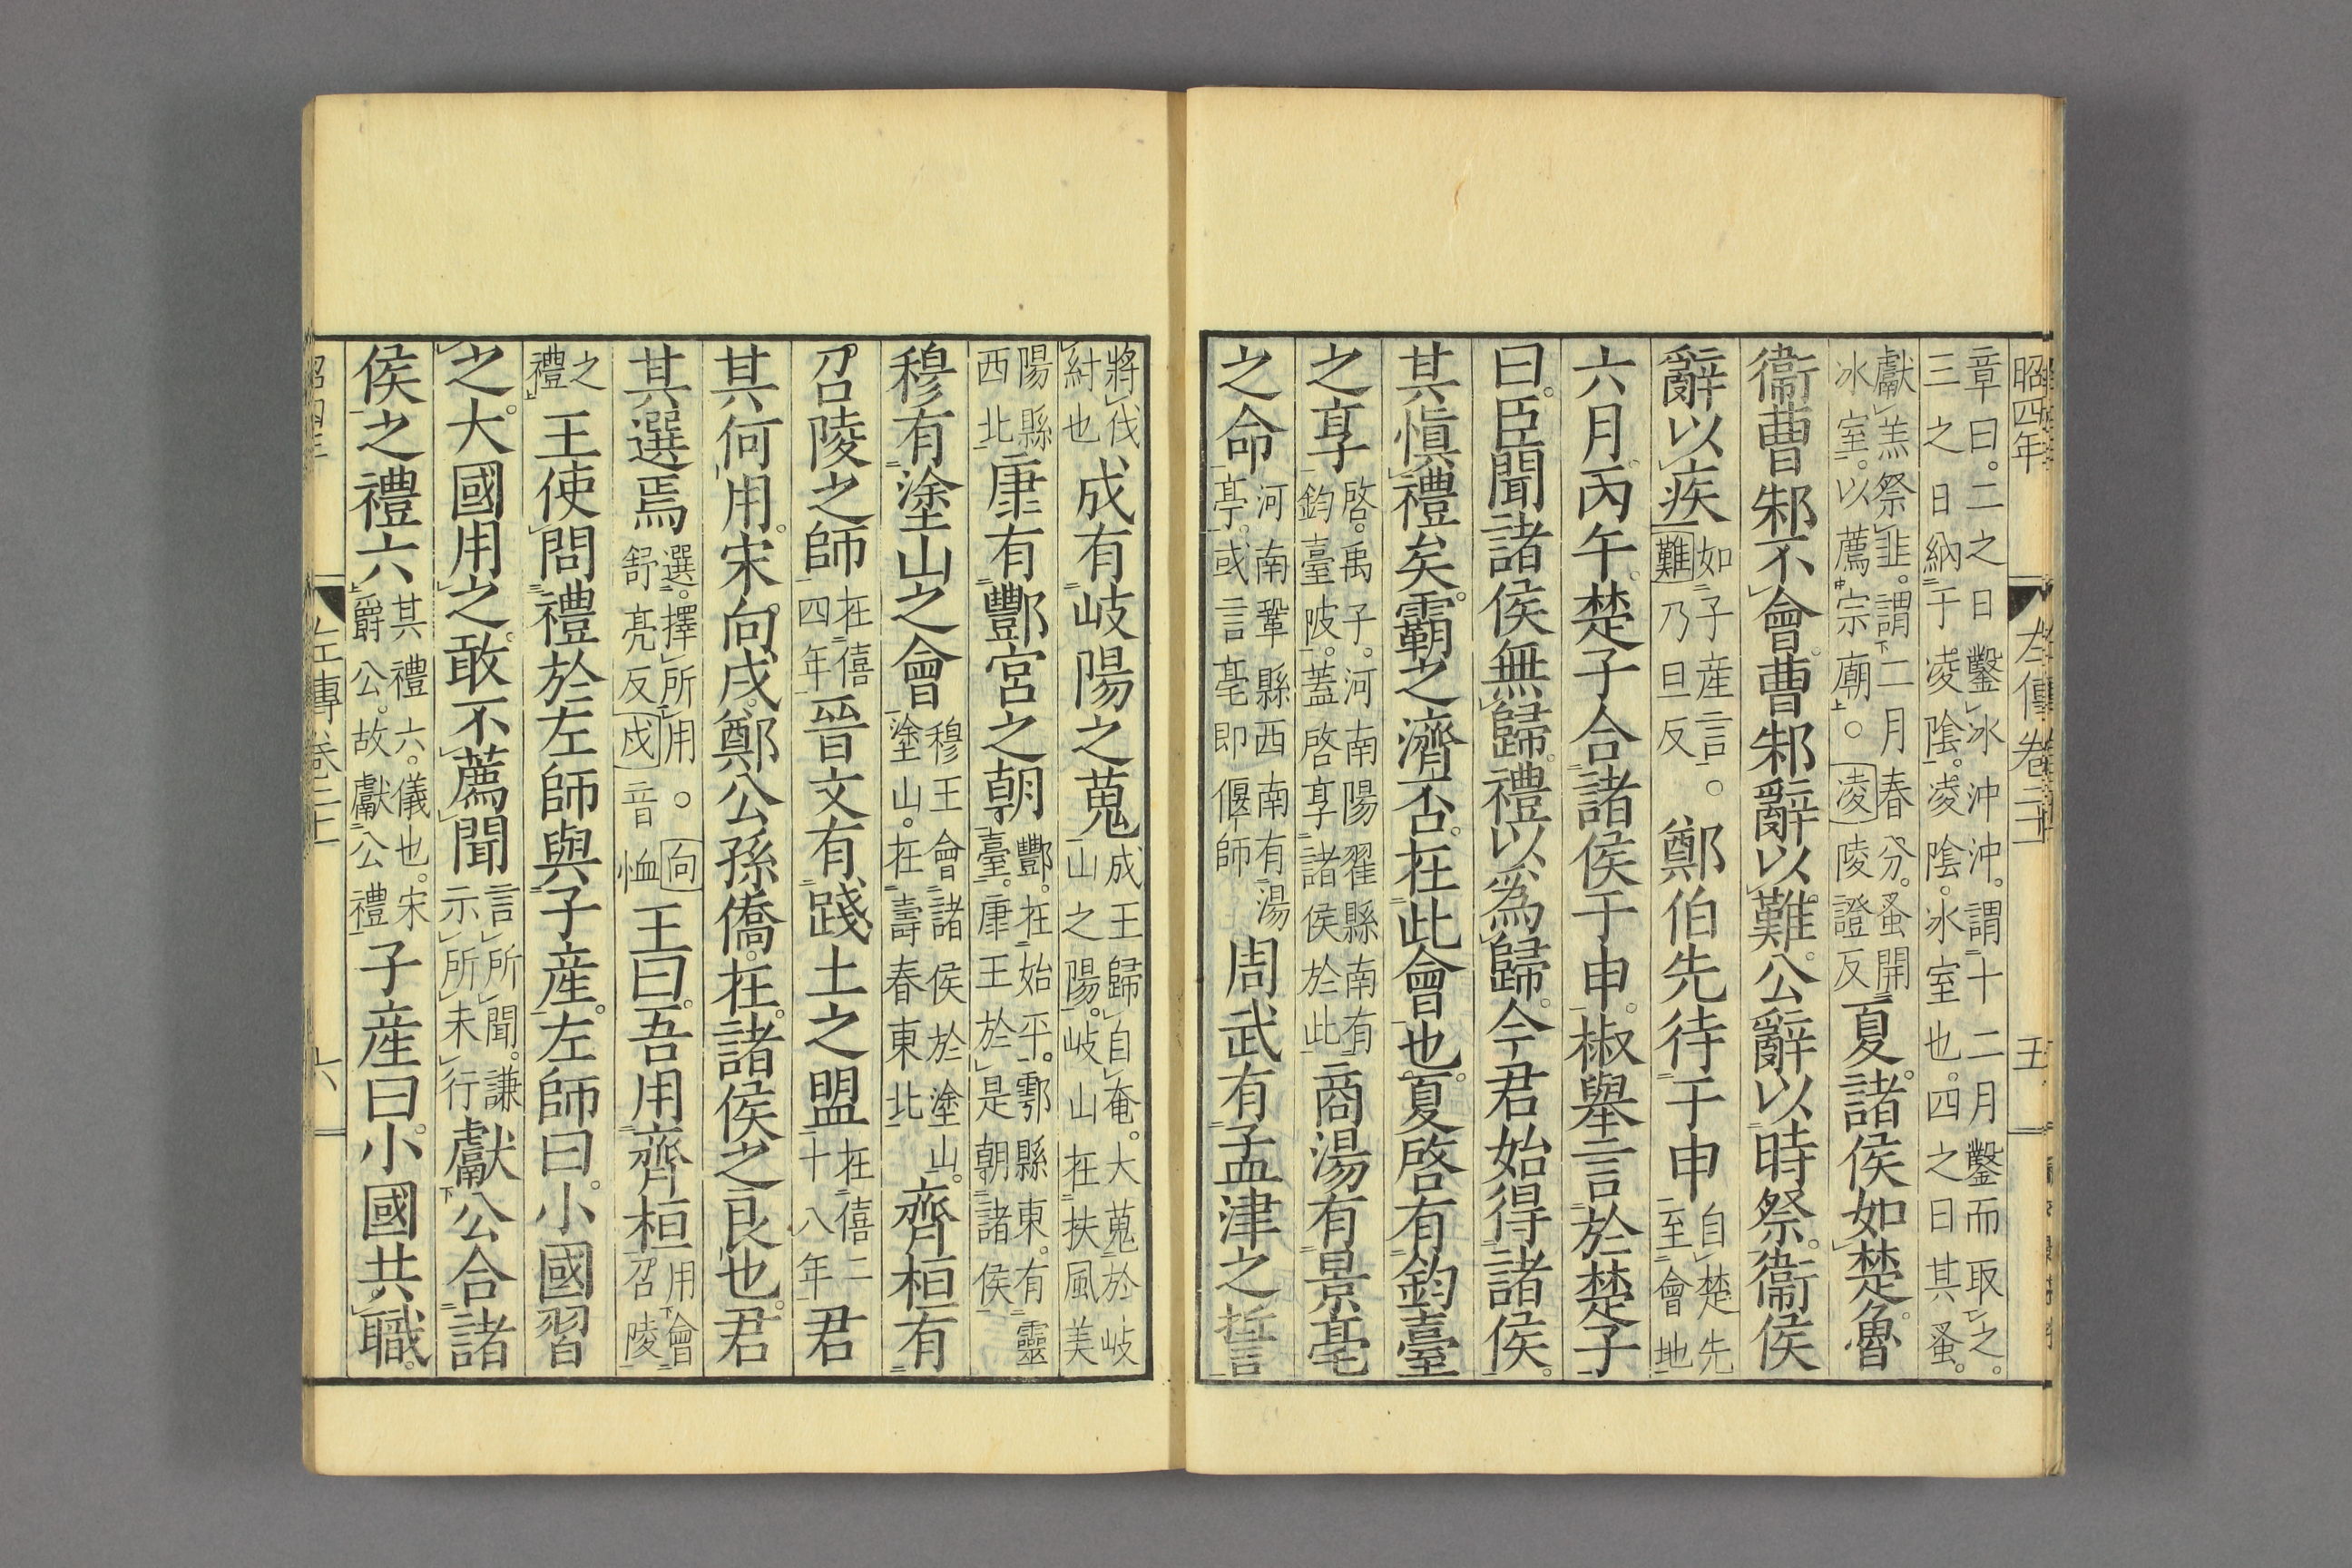 昭四年　左傳卷二十一　五
章曰。二之日鑿冰沖沖。謂十二月鑿而取之。
三之日納于凌陰。凌陰。冰室也。四之日其蚤。
獻羔祭韭。謂二月春分。蚤開
冰室。以薦宗廟。○凌陵證反
夏。諸侯如楚。魯
衞曹邾不會。曹邾辭以難。公辭以時祭。衞侯
辭以疾如子産言。○難乃旦反鄭伯先待于申自楚先至會地
六月丙午。楚子合諸侯于申。椒舉言於楚子
曰。臣聞諸侯無歸。禮以爲歸。今君始得諸侯。
其愼禮矣。霸之濟否。在此會也。夏啓有鈞臺
之享啓。禹子。河南陽翟縣南有鈞臺陂。蓋啓享諸侯於此商湯有景亳
之命河南鞏縣西南有湯亭。或言亳即偃師周武有孟津之誓
將伐紂也成有岐陽之蒐成王歸自奄。大蒐於岐山之陽。岐山在扶風美
陽縣西北康有酆宮之朝酆。在始平。鄠縣東。有靈臺。康王於是朝諸侯
穆有塗山之會穆王會諸侯於塗山。塗山。在壽春東北齊桓有
召陵之師在僖四年晉文有踐土之盟在僖二十八年君
其何用。宋向戌。鄭公孫僑。在。諸侯之良也。君
其選焉選。擇所用。○向舒亮反戌音恤王曰。吾用齊桓用會召陵
之禮王使問禮於左師與子産。左師曰。小國習
之。大國用之。敢不薦聞言所聞。謙示所未行獻公合諸
侯之禮六其禮六。儀也。宋爵公。故獻公禮子産曰。小國共職。
昭四年　左傳卷二十一　六